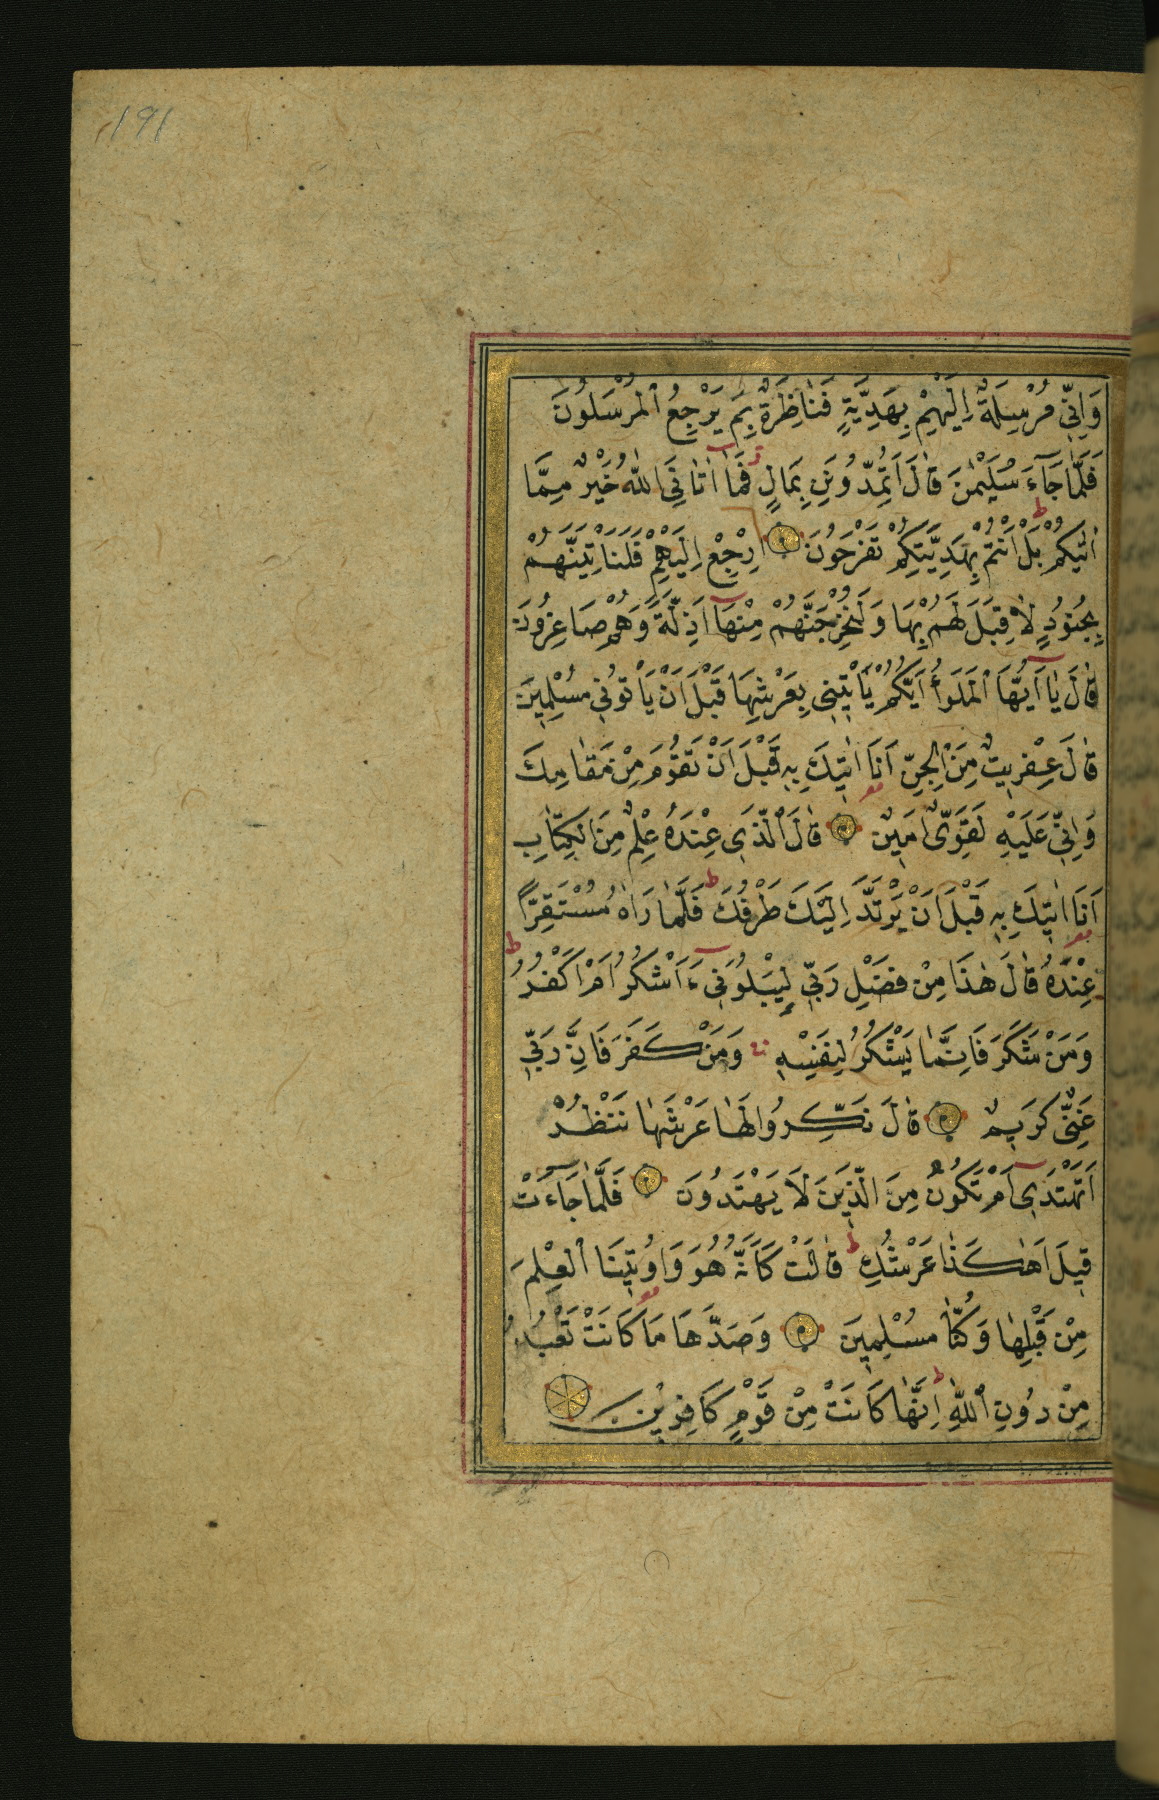 191
وَاِنِّي مُرْسِلَةٌ اِلَيْهِمْ بِهَدِيَّةٍ فَنَاظِرَةٌ بِمَ يَرْجِعُ الْمُرْسَلُونَ
فَلَمَّا جَآءَ سُلَيْمٰنَ قَالَ اَتُمِدُّونَنِ بِمَالٍ فَمَآ اٰتَانِيَ اللّٰهُ خَيْرٌ مِمَّا
اٰتٰيكُمْ بَلْ اَنْتُمْ بِهَدِيَّتِكُمْ تَفْرَحُونَ اِرْجِعْ اِلَيْهِمْ فَلَنَاْتِيَنَّهُمْ
بِجُنُودٍ لَا قِبَلَ لَهُمْ بِهَا وَلَنُخْرِجَنَّهُمْ مِنْهَآ اَذِلَّةً وَهُمْ صَاغِرُونَ
قَالَ يَآ اَيُّهَا الْمَلَؤُا اَيُّكُمْ يَاْتِينِي بِعَرْشِهَا قَبْلَ اَنْ يَاْتُونِي مُسْلِمِينَ
قَالَ عِفْرِيتٌ مِنَ الْجِنِّ اَنَا اٰتِيكَ بِهِ قَبْلَ اَنْ تَقُومَ مِنْ مَقَامِكَ
وَاِنِّي عَلَيْهِ لَقَوِيٌّ اَمِينٌ قَالَ الَّذِي عِنْدَهُ عِلْمٌ مِنَ الْكِتَابِ
اَنَا اٰتِيكَ بِهِ قَبْلَ اَنْ يَرْتَدَّ اِلَيْكَ طَرْفُكَ فَلَمَّا رَاٰهُ مُسْتَقِرًّا
عِنْدَهُ قَالَ هٰذَا مِنْ فَضْلِ رَبِّي لِيَبْلُوَنِي ءَاَشْكُرُ اَمْ اَكْفُرُ
وَمَنْ شَكَرَ فَاِنَّمَا يَشْكُرُ لِنَفْسِهِ وَمَنْ كَفَرَ فَاِنَّ رَبِّي
غَنِيٌّ كَرِيمٌ قَالَ نَكِّرُوا لَهَا عَرْشَهَا نَنْظُرْ
اَتَهْتَدِي اَمْ تَكُونُ مِنَ الَّذِينَ لَا يَهْتَدُونَ فَلَمَّا جَآءَتْ
قِيلَ اَهٰكَذَا عَرْشُكِ قَالَتْ كَاَنَّهُ هُوَ وَاُوتِينَا الْعِلْمَ
مِنْ قَبْلِهَا وَكُنَّا مُسْلِمِينَ وَصَدَّهَا مَا كَانَتْ تَعْبُدُ
مِنْ دُونِ اللّٰهِ اِنَّهَا كَانَتْ مِنْ قَوْمٍ كَافِرِينَ